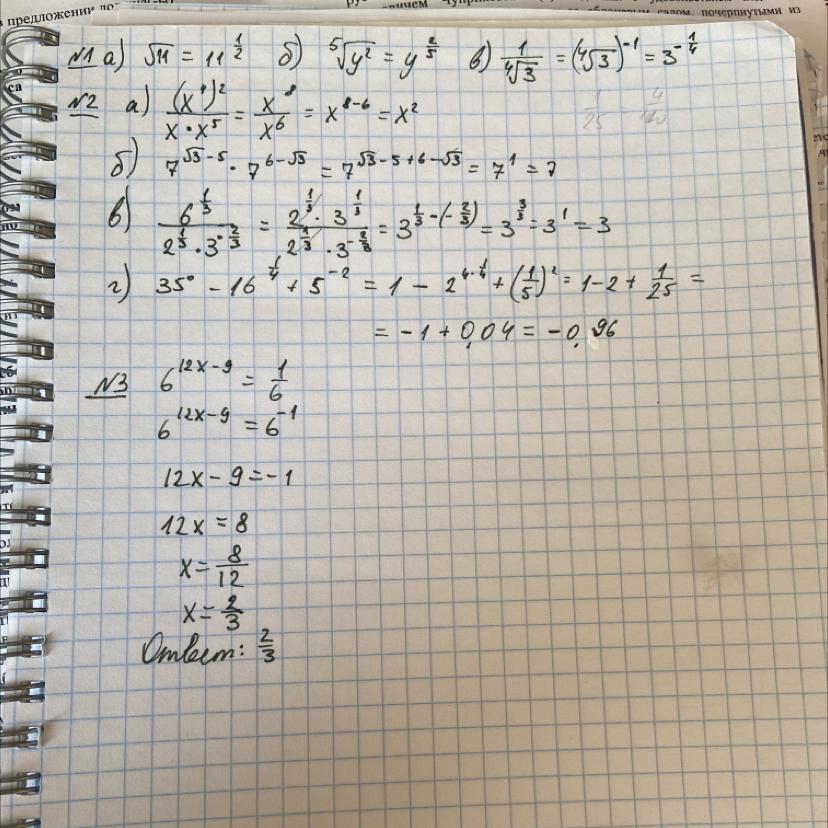 в предложении
№1 а) √11 = 11^(1/2) б) ⁵√(y²) = y^(2/5) в) 1/⁴√3 = (⁴√3)^(-1) = 3^(-1/4)
№2 а) (x⁴)²/(x·x⁵) = x⁸/x⁶ = x^(8-6) = x²
б) 7^(√3-5) · 7^(6-√3) = 7^(√3-5+6-√3) = 7¹ = 7
в) 6^(1/3)/(2^(1/3)·3^(-2/3)) = (2^(1/3)·3^(1/3))/(2^(1/3)·3^(-2/3)) = 3^(1/3-(-2/3)) = 3^(3/3) = 3¹ = 3
г) 35⁰ - 16^(1/4) + 5^(-2) = 1 - 2^(4·1/4) + (1/5)² = 1-2+1/25 =
= -1+0,04 = -0,96
№3 6^(12x-9) = 1/6
6^(12x-9) = 6^(-1)
12x-9=-1
12x=8
x=8/12
x=2/3
Ответ: 2/3